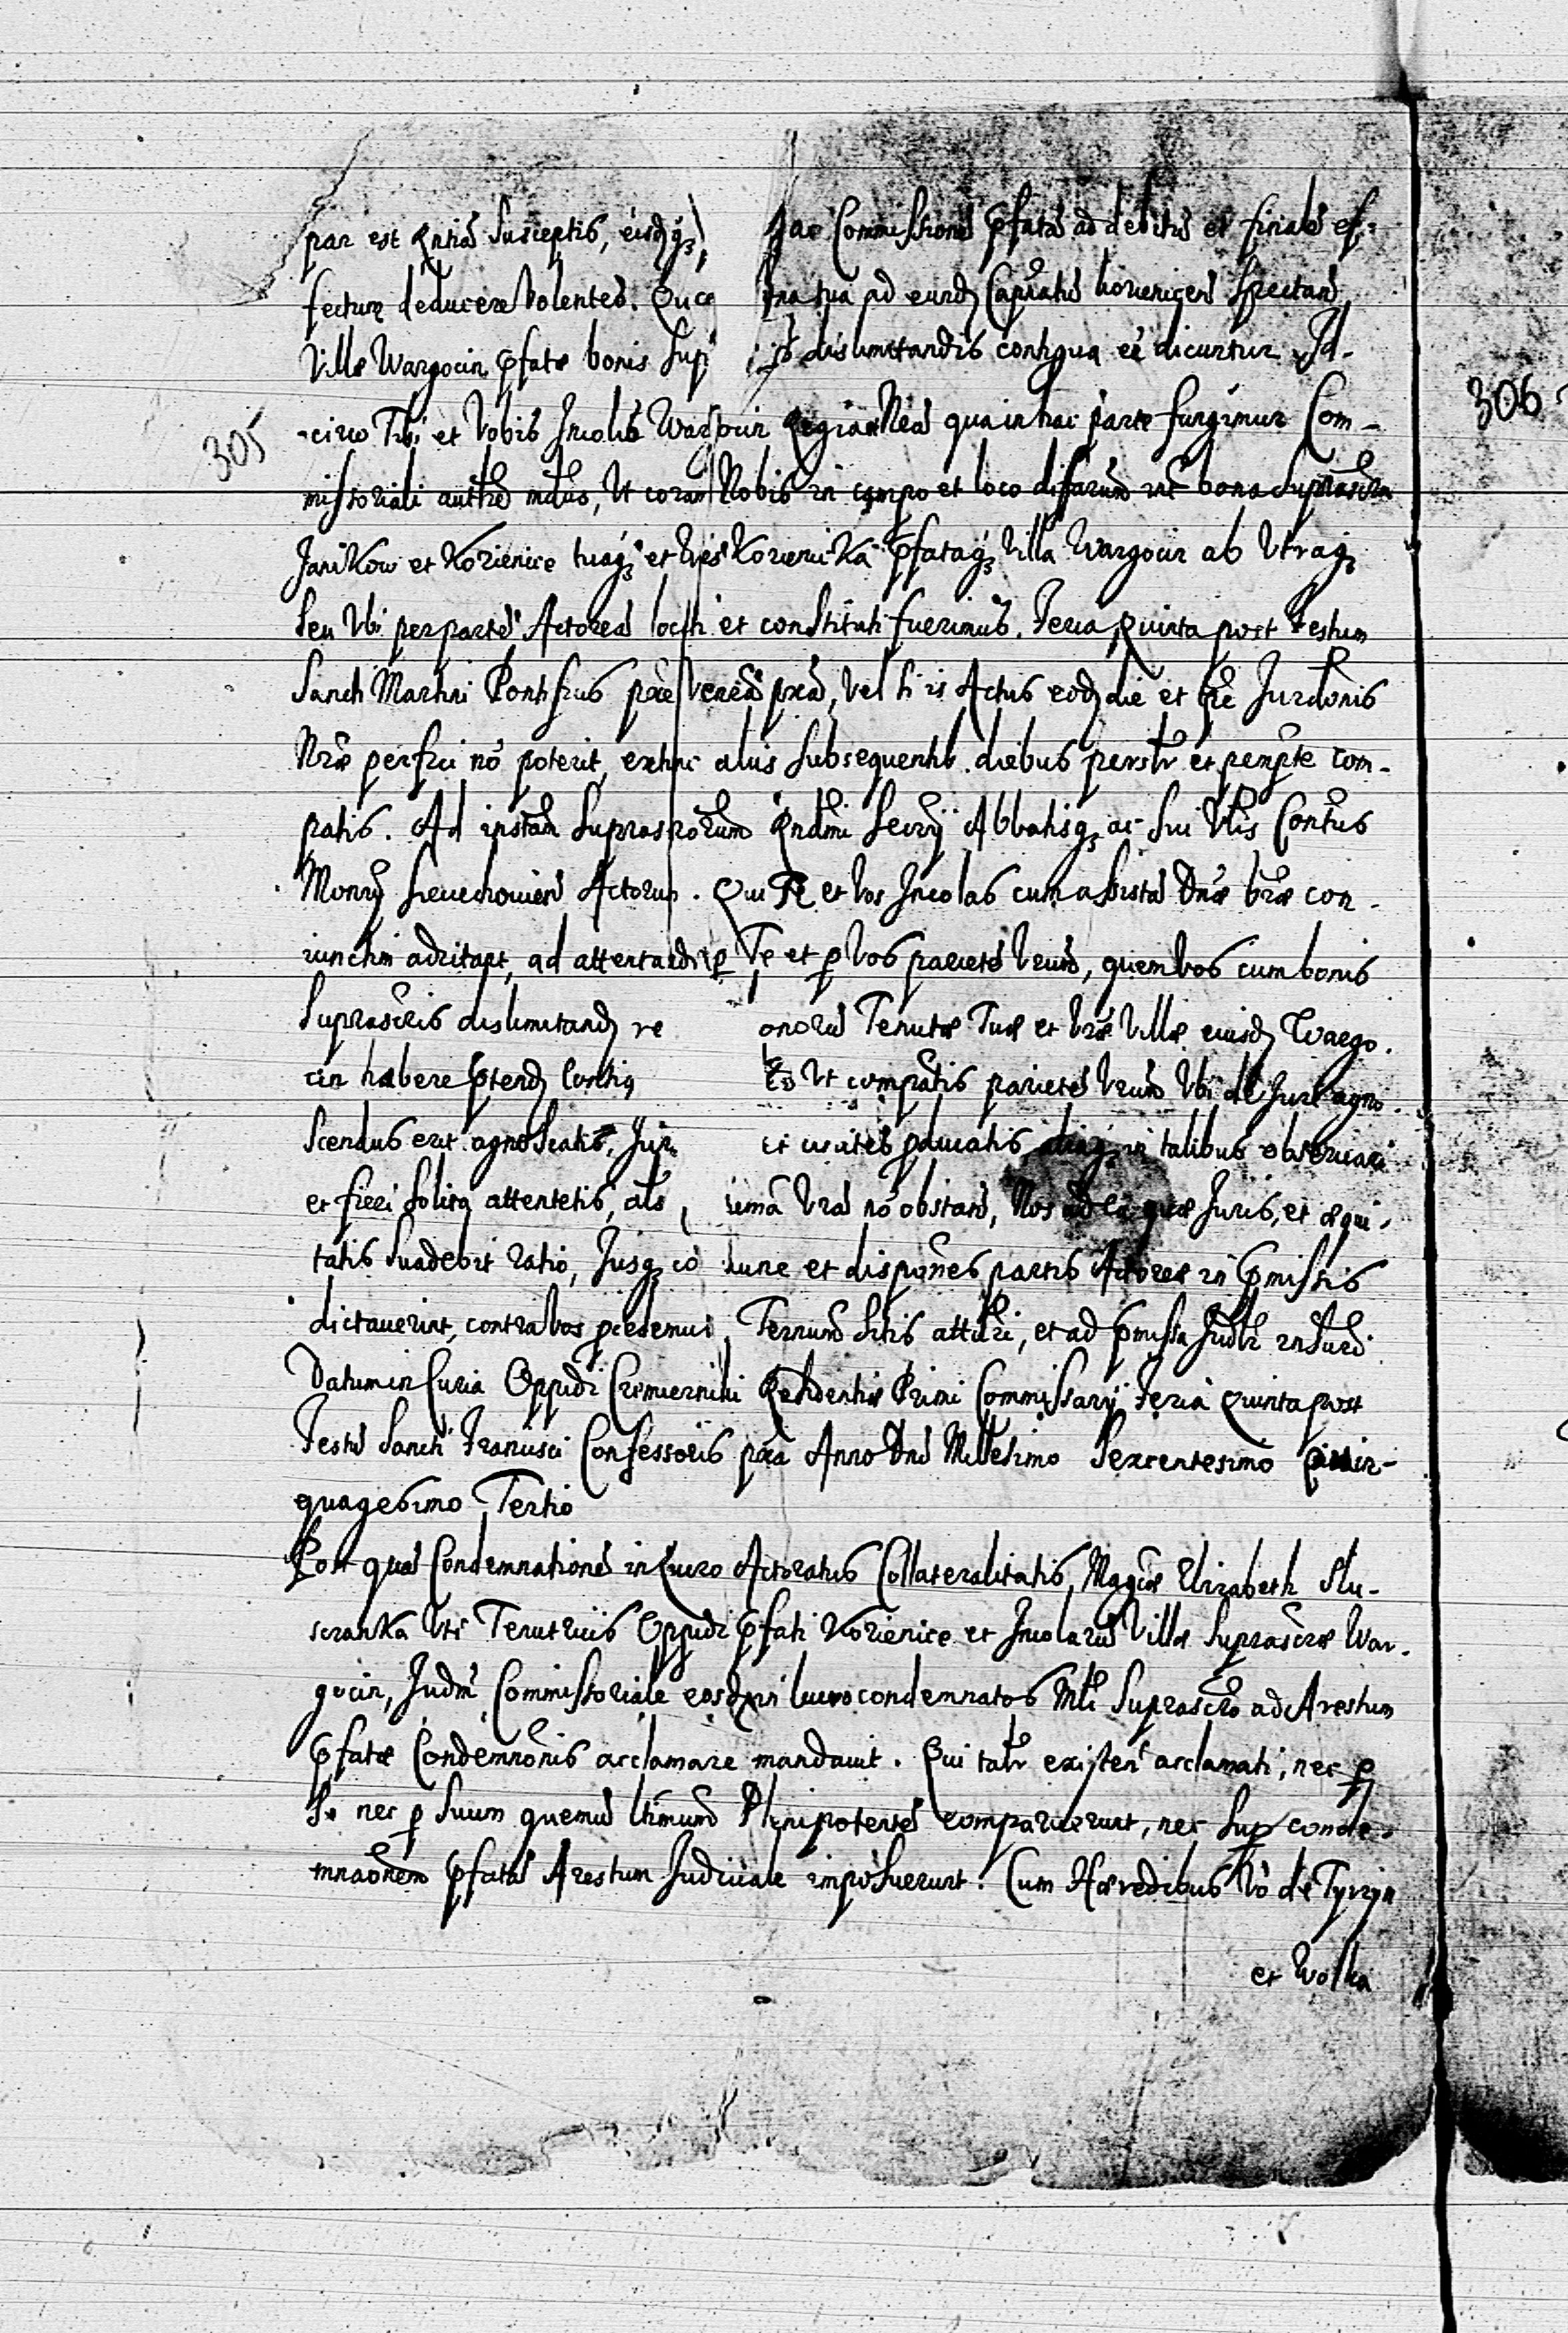 par est Rntia susceptis, eisdq
Commissione pfata ad debitu et finale ef-
fectum deducere volentes.
tua ad eund Capiatu korienicen spectan
Villæ Wargocin pfatæ bonis
dislimitandis contigua eê dicuntur. Id-
305
306
-circo Tibi et Vobis Incolis Wargocin Regia Nra qua in hac parte fungimur Com-
missoriali authte mdus, Ut coram Nobis in campo et loco differarum int bona suprascra
Janikow et Korienice tuaq et Korienicka pfataq Villa Wargocin ab Utraq
seu Ubi per partes Actoreas locati et constituti fuerimus. Feria quinta post Festum
Sancti Martini Pontificis pxe ventû pxa, vel si is Actus eod die et pte Jurdonis
Nræ perfici nô poterit, extunc aliis subsequentib. diebus persolr et perempte com-
patis. Ad instam suprascrorum Rndmi Abbatisq ac sui Conttus
Monry Actorum. Qui Te et vos Incolas cum assista Dnæ Vræ con-
iunctim adcitant, ad attentand p Te et p Vos parietes Veros, quem vos cum bonis
suprascris dislimitand re
onoru Tenutæ Tuæ et Vræ Villæ eiusd Wargo-
cin habere ptend
Ut compatis parietes Veros Ubi de Jure agno-
scendus erit agnoscatis, Jur
et ducatis, aliaq in talibus observari
et fieri solita attentetis, als
Vra nô obstan, Nos ad ea quæ Juris, et æqui-
tatis suadebit ratio, Jusq cô
lune et dispônes partis Actoreæ in pmissis
dictaverint, contra vos pcedemus, Ternum sitis attturi, et ad pmissa Judtr rnsuri
Datum in Curia Oppidi Residentiæ Primi Commissarÿ Feria quinta post
Festu Sancti Francisci Confessoris pxa Anno Dni Millesimo Sexcentesimo Quin-
quagesimo Tertio
Post qua Condemnatione in lucro Actoratus Collateralitatis, Magcæ Elizabeth Slu-
scranka Uti Tenutricis Oppidi pfati Korienice et Incolaru Villæ suprascræ War-
gocin, Judm Commissoriale eosd in lucro condemnatos Mli suprascro ad Arestum
pfatæ Condemnônis acclamare mandavit. Qui talr existen acclamati, nec p
se nec p suum quemvis ltimum Plenipotente comparuerunt, nec sup conde-
mnaônem pfata Arestum Judiciale imposuerunt. Cum Hæredibus Vô de Tyrzyn
et Wolka